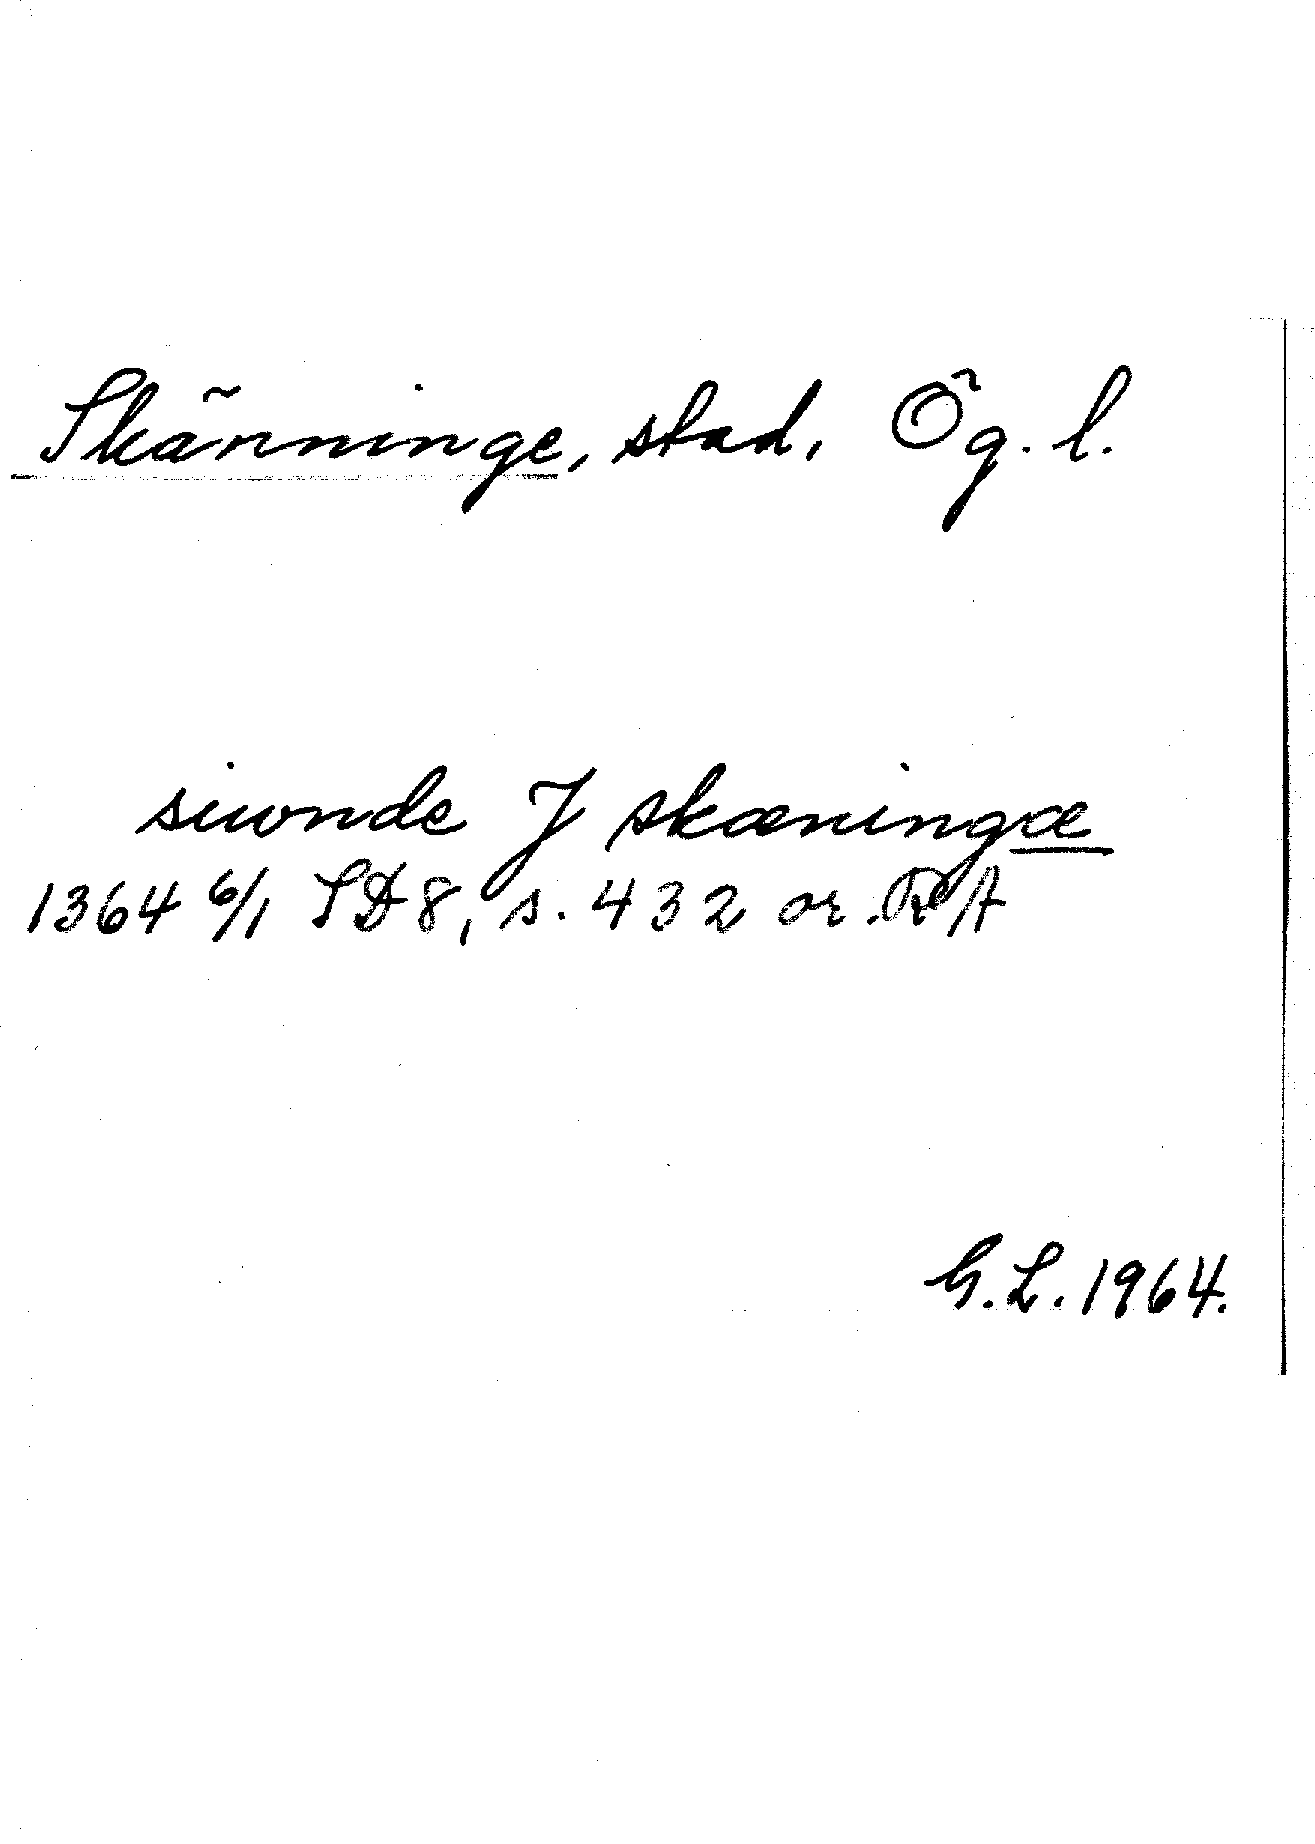 Skänninge, stad, Ög. l.
siwnde J skæningæ
1364 6/1 SD 8, s. 432 or. RA
G. L. 1964.